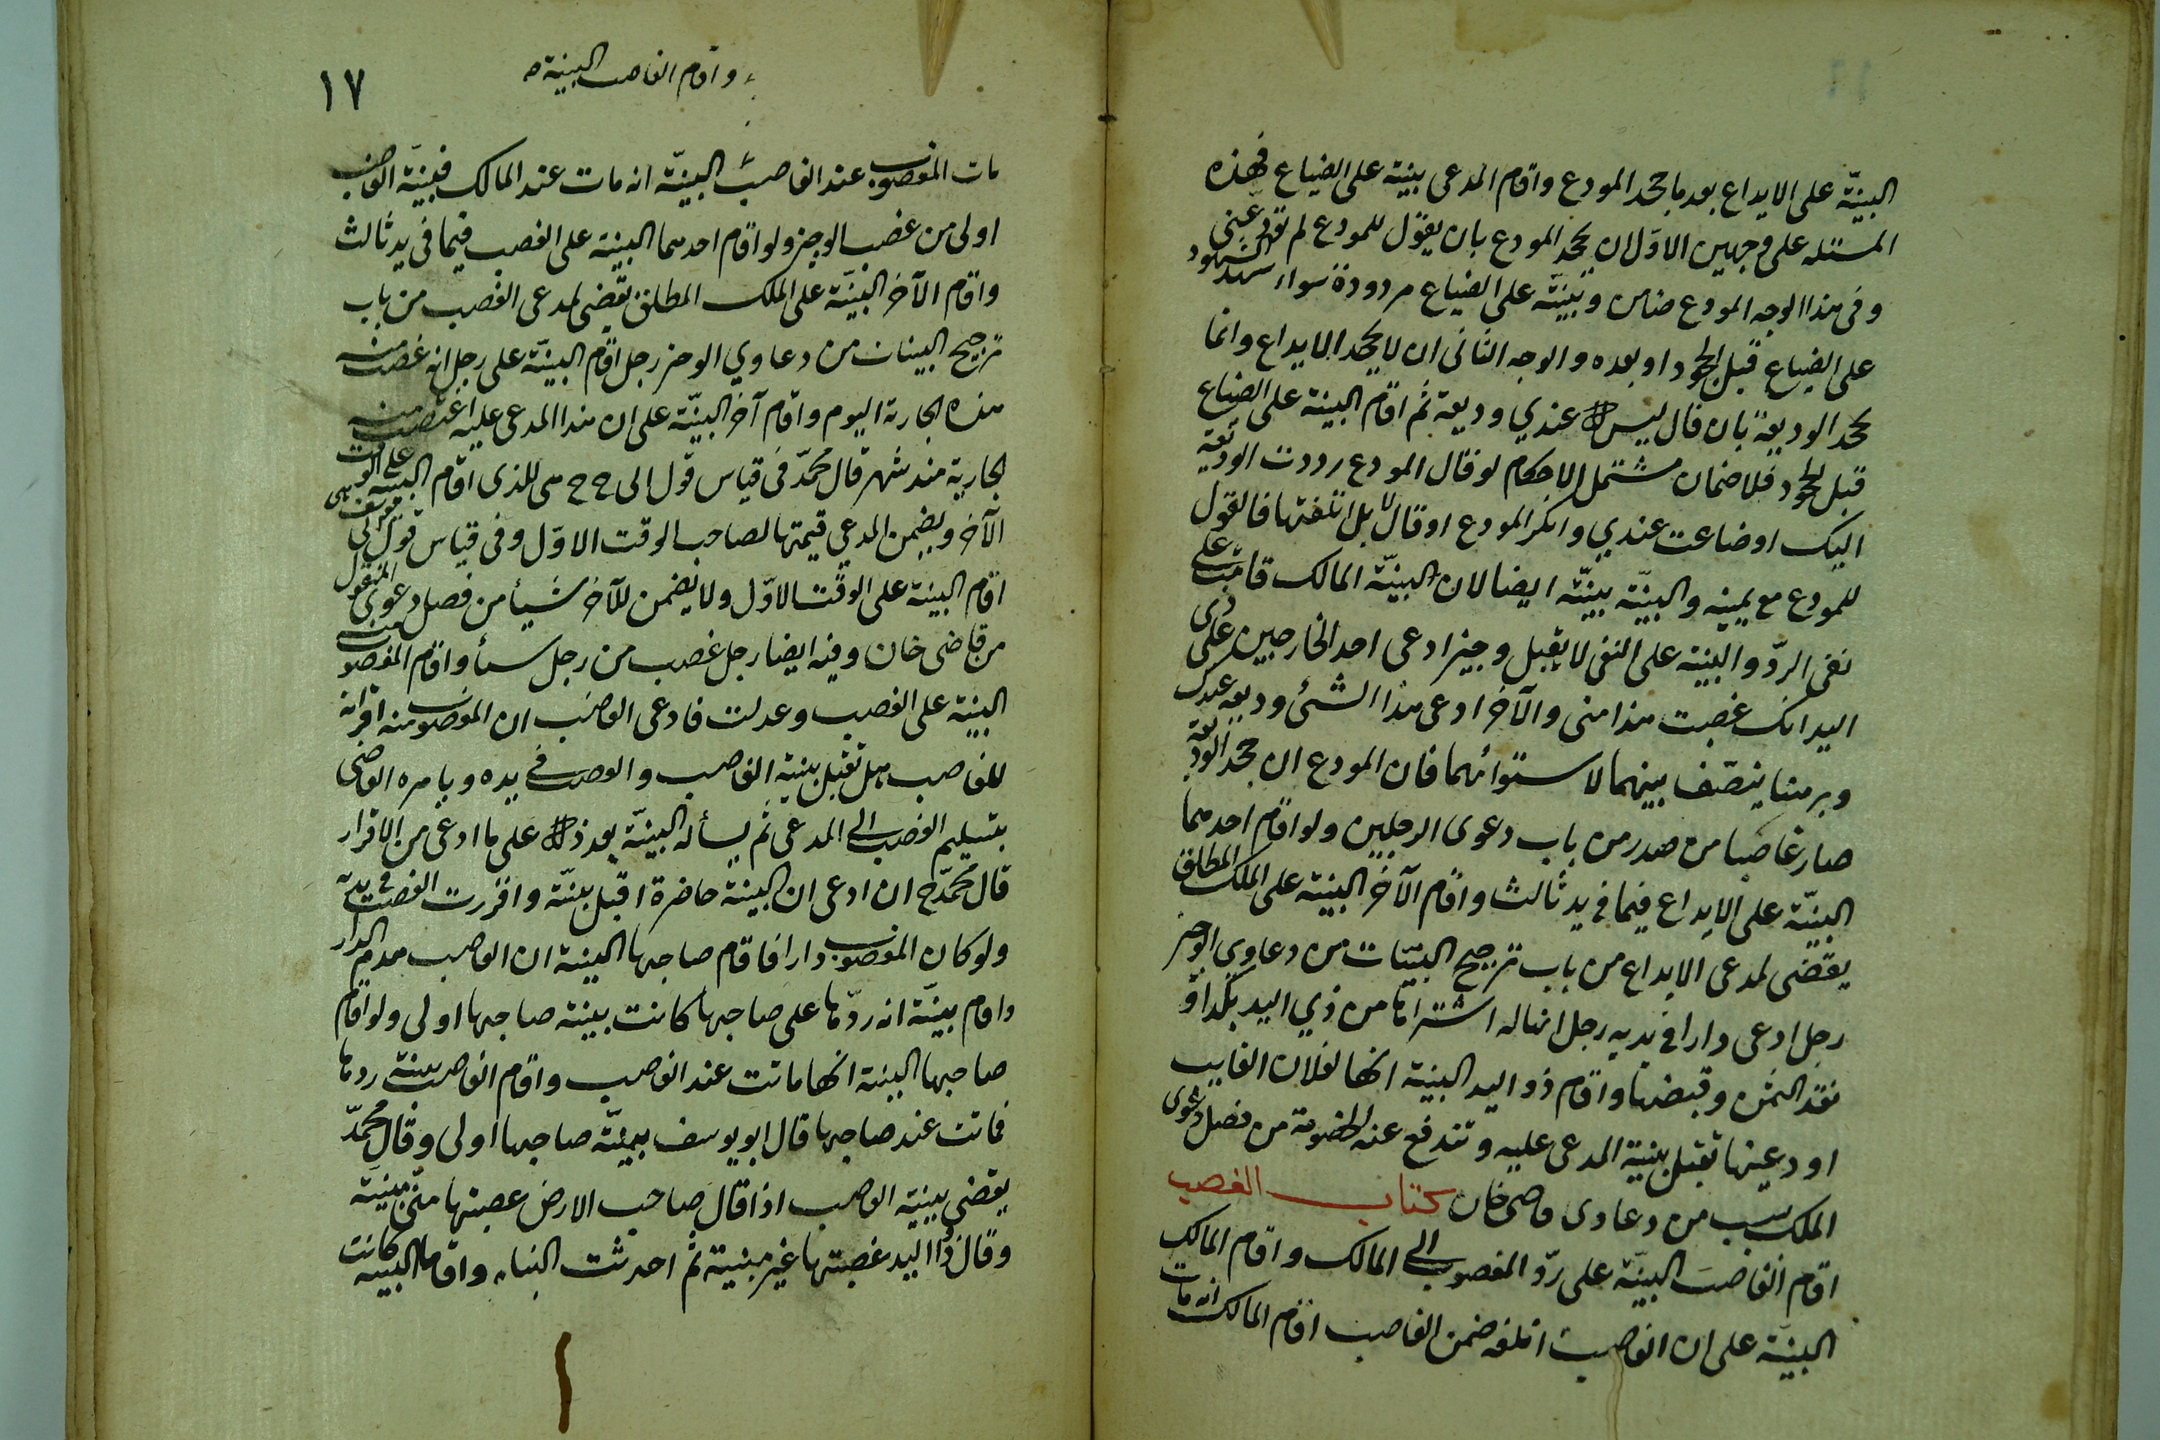 البينة على الايداع بعد ما جحد المودع واقام المدعى بينة على الضياع فهذه
المسئله على وجهين الاول ان يجحد المودع بان يقول للمودع لم تودعنى
وفى هذا الوجه المودع ضامن وبينته على الضياع مردودة سواء شهد الشهود
على الضياع قبل الجحود او بعده والوجه الثانى ان لا يجحد الايداع وانما
يجحد الوديعة بان قال ليس لك عندي وديعة ثم اقام البينة على الضياع
قبل الجحود فلا ضمان مشتمل الاحكام لو قال المودع رددت الوديعة
اليك او ضاعت عندي وانكر المودع او قال لا بل اتلفتها فالقول
للمودع مع يمينه والبينة بينته ايضا لان البينة المالك قامت على
نفى الرد والبينة على النفى لا يقبل وجيز ادعى احد الخارجين على ذى
اليد انك غصبت هذا منى والآخر ادعى هذا الشئ وديعة عندك
وبرهنا ينصف بينهما لاستوائهما فان المودع ان جحد الوديعة
صار غاصبا من صدر من باب دعوى الرجلين ولو اقام احدهما
البينة على الايداع فيما فى يد ثالث واقام الآخر البينة على الملك المطلق
يقضى لمدعى الايداع من باب ترجيح البينات من دعاوى الوجيز
رجل ادعى دارا فى يديه رجل انها له اشتراها من ذي اليد بكذا و
نقد الثمن وقبضها واقام ذو اليد البينة انها لفلان الغايب
اودعنيها تقبل بينة المدعى عليه وتندفع عنه الخصومة من فصل دعوى
الملك بسبب من دعاوى قاضى خان كتاب الغصب
اقام الغاصب البينة على رد المغصوب الى المالك واقام المالك
البينة على ان الغاصب اتلفه ضمن الغاصب اقام المالك انه مات
١٧
واقام الغاصب البينة صح
مات المغصوب عند الغاصب البينة انه مات عند المالك فبينة الغاصب
اولى من غصب الوجيز ولو اقام احدهما البينة على الغصب فيما فى يد ثالث
واقام الآخر البينة على الملك المطلق يقضى لمدعى الغصب من باب
ترجيح البينات من دعاوي الوجيز رجل اقام البينة على رجل انه غصب منه
هذه الجارية اليوم واقام آخر البينة على ان هذا المدعى عليه اغتصب منه
الجارية منذ شهر قال محمد فى قياس قول ابى ح ح هى للذى اقام البينة على الوقت
الآخر ويضمن المدعي قيمتها لصاحب الوقت الاول وفى قياس قول ابى يوسف هى
اقام البينة على الوقت الاول ولا يضمن للآخر شيأ من فصل دعوى المنقول
من قاضى خان وفيه ايضا رجل غصب من رجل شيأ واقام المغصوب منه
البينة على الغصب وعدلت فادعى الغاصب ان المغصوب منه اقر انه
للغاصب هل تقبل بينة الغاصب والغصب فى يده ويامره القاضى
بتسليم الغصب الى المدعى ثم يسأله البينة بعد ذلك على ما ادعى من الاقرار
قال محمد ح ان ادعى ان البينة حاضرة اقبل بينته واقررت الغصب فى يده
ولو كان المغصوب دارا فاقام صاحبها البينة ان الغاصب هدم الدار
واقام بينة انه ردها على صاحبها كانت بينة صاحبها اولى ولو اقام
صاحبها البينة انها ماتت عند الغاصب واقام الغاصب بينة ردها
فماتت عند صاحبها قال ابو يوسف بينة صاحبها اولى وقال محمد
يقضى ببينة الغاصب اذا قال صاحب الارض غصبتها منى مبنية
وقال ذا اليد غصبتها غير مبنية ثم احدثت البناء واقاما البينة كانت